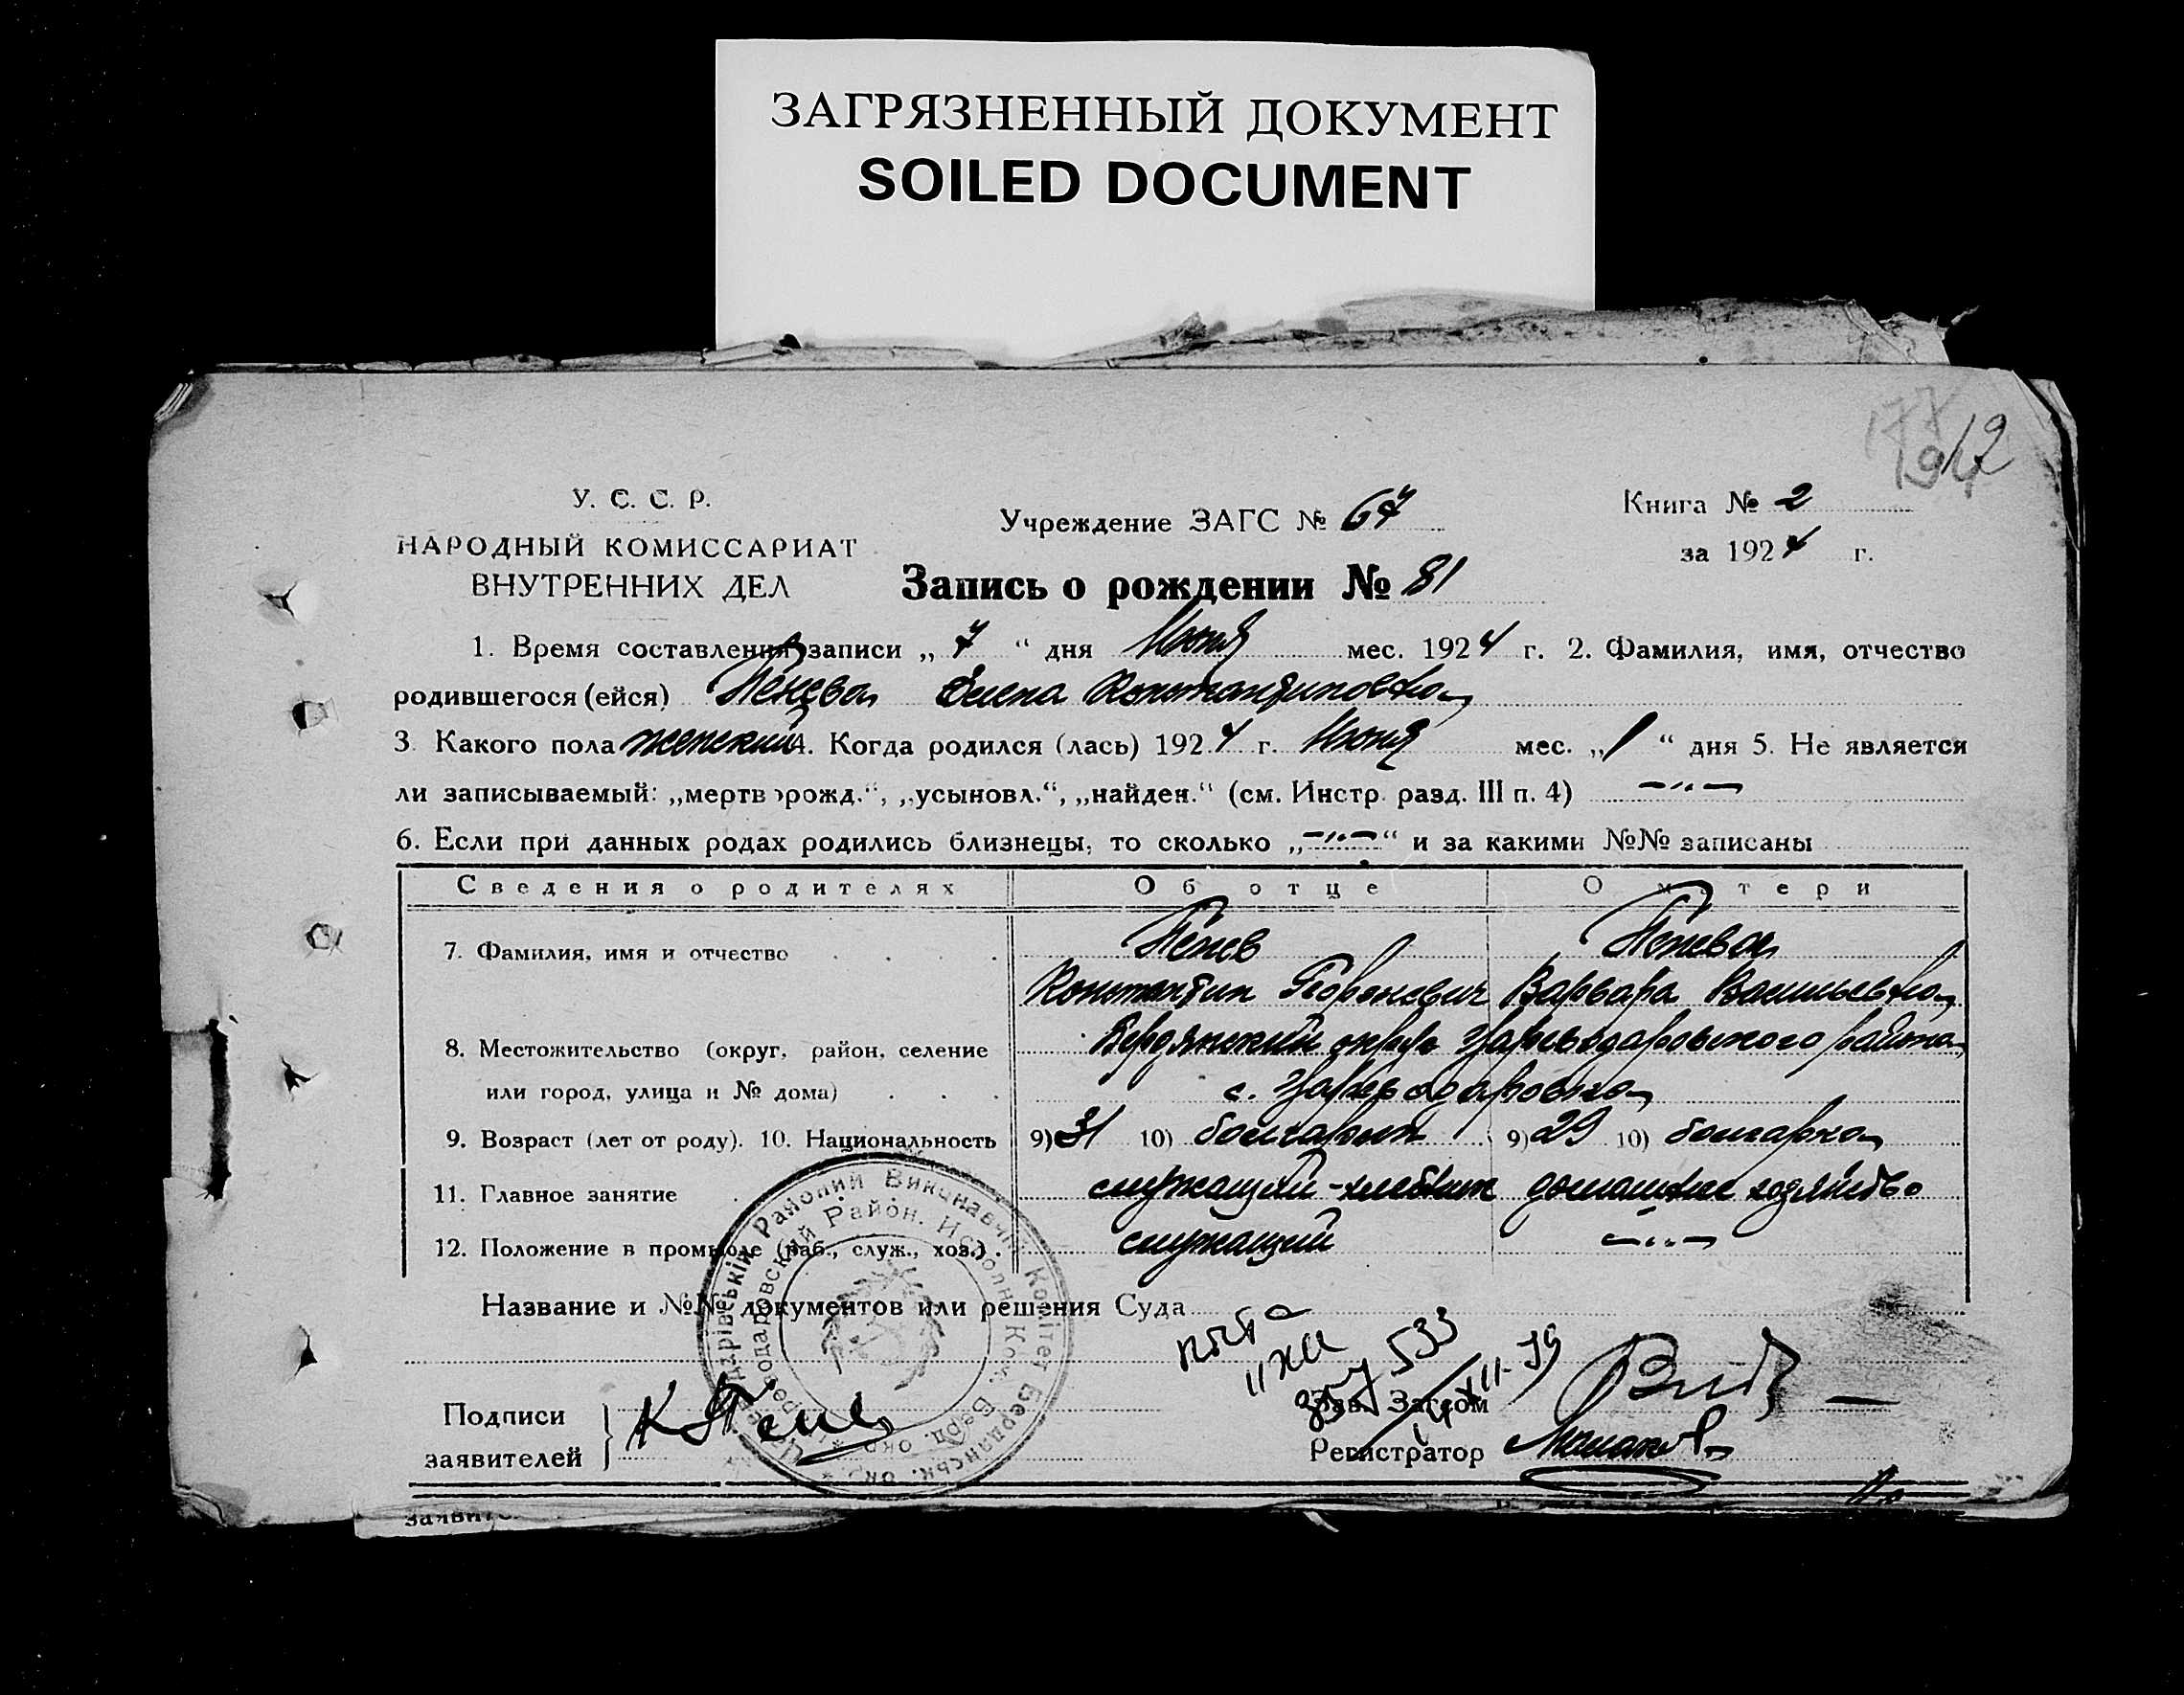 ЗАГРЯЗНЕННЫЙ ДОКУМЕНТ
SOILED DOCUMENT
У. С. С. Р.
НАРОДНЫЙ КОМИССАРИАТ
ВНУТРЕННИХ ДЕЛ
Учреждение ЗАГС № 67
Книга № 2
за 1924 г.
Запись о рождении № 81
1. Время составления записи „ 7 “ дня Июня мес. 1924 г. 2. Фамилия, имя, отчество
родившегося (ейся) Пенева Елена Константиновна
3. Какого пола женский 4. Когда родился (лась) 1924 г. Июня мес. „ 1 “ дня 5. Не является
ли записываемый: „мертворожд.“, „усыновл.“, „найден.“ (см. Инстр. разд. III п. 4) —"—
6. Если при данных родах родились близнецы, то сколько „ —"— “ и за какими №№ записаны
Сведения о родителях Об отце О матери
7. Фамилия, имя и отчество Пенев Пенева
Константин Георгиевич Варвара Васильевна
8. Местожительство (округ, район, селение Бердянский округ Цареводаровского района
или город, улица и № дома) с. Цареводаровка
9. Возраст (лет от роду). 10. Национальность 9) 31 10) болгарин 9) 29 10) болгарка
11. Главное занятие служащий - домашнее хозяйство
12. Положение в промысле (раб., служ., хоз.) служащий —"—
Название и №№ документов или решения Суда
533
Зав. Загсом
Подписи
заявителей К Пенев
Регистратор